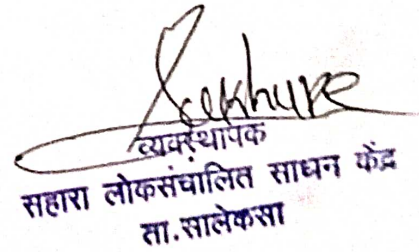 व्यवस्थापक
सहारा लोकसंचालित साधन केंद्र
ता.सालेकसा